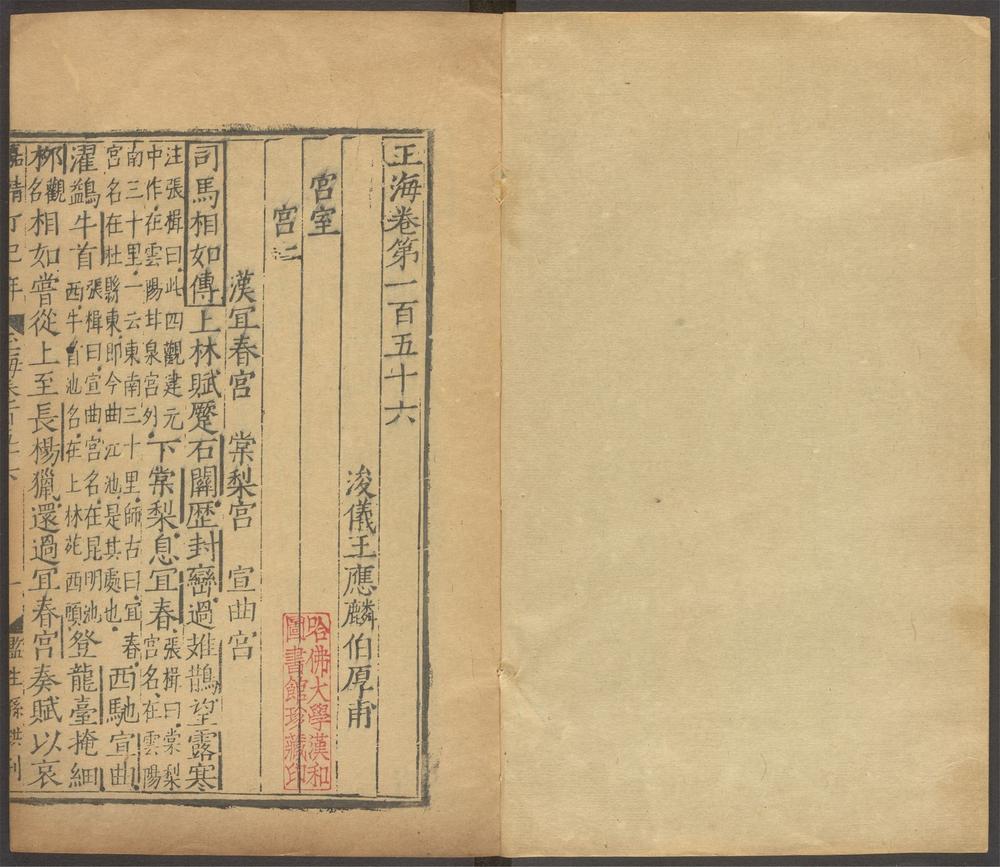 玉海卷第一百五十六
浚儀王應麟伯厚甫
宮室
宮二
漢宜春宮 棠梨宮 宣曲宮
司馬相如傳上林賦蹷石闗歴封巒過䧿鵲望露寒
注張楫曰此四觀建元
中作在雲陽甘泉宮外
下棠梨息宜春
張楫曰棠梨
宮名在雲陽
南三十里
一云東南三十里師古曰宜春
宮名在杜縣東即今曲江池是其處也
西馳宣曲
濯鷁牛首
張楫曰宣曲宮名在昆明池
西牛首池名在上林苑西頭
登龍臺掩細
柳
觀
名
相如嘗從上至長楊獵還過宜春宮奏賦以哀
嘉靖丁巳年
玉海卷一百五十六
一
監生孫洪刊
哈佛大學漢和
圖書館珍藏印